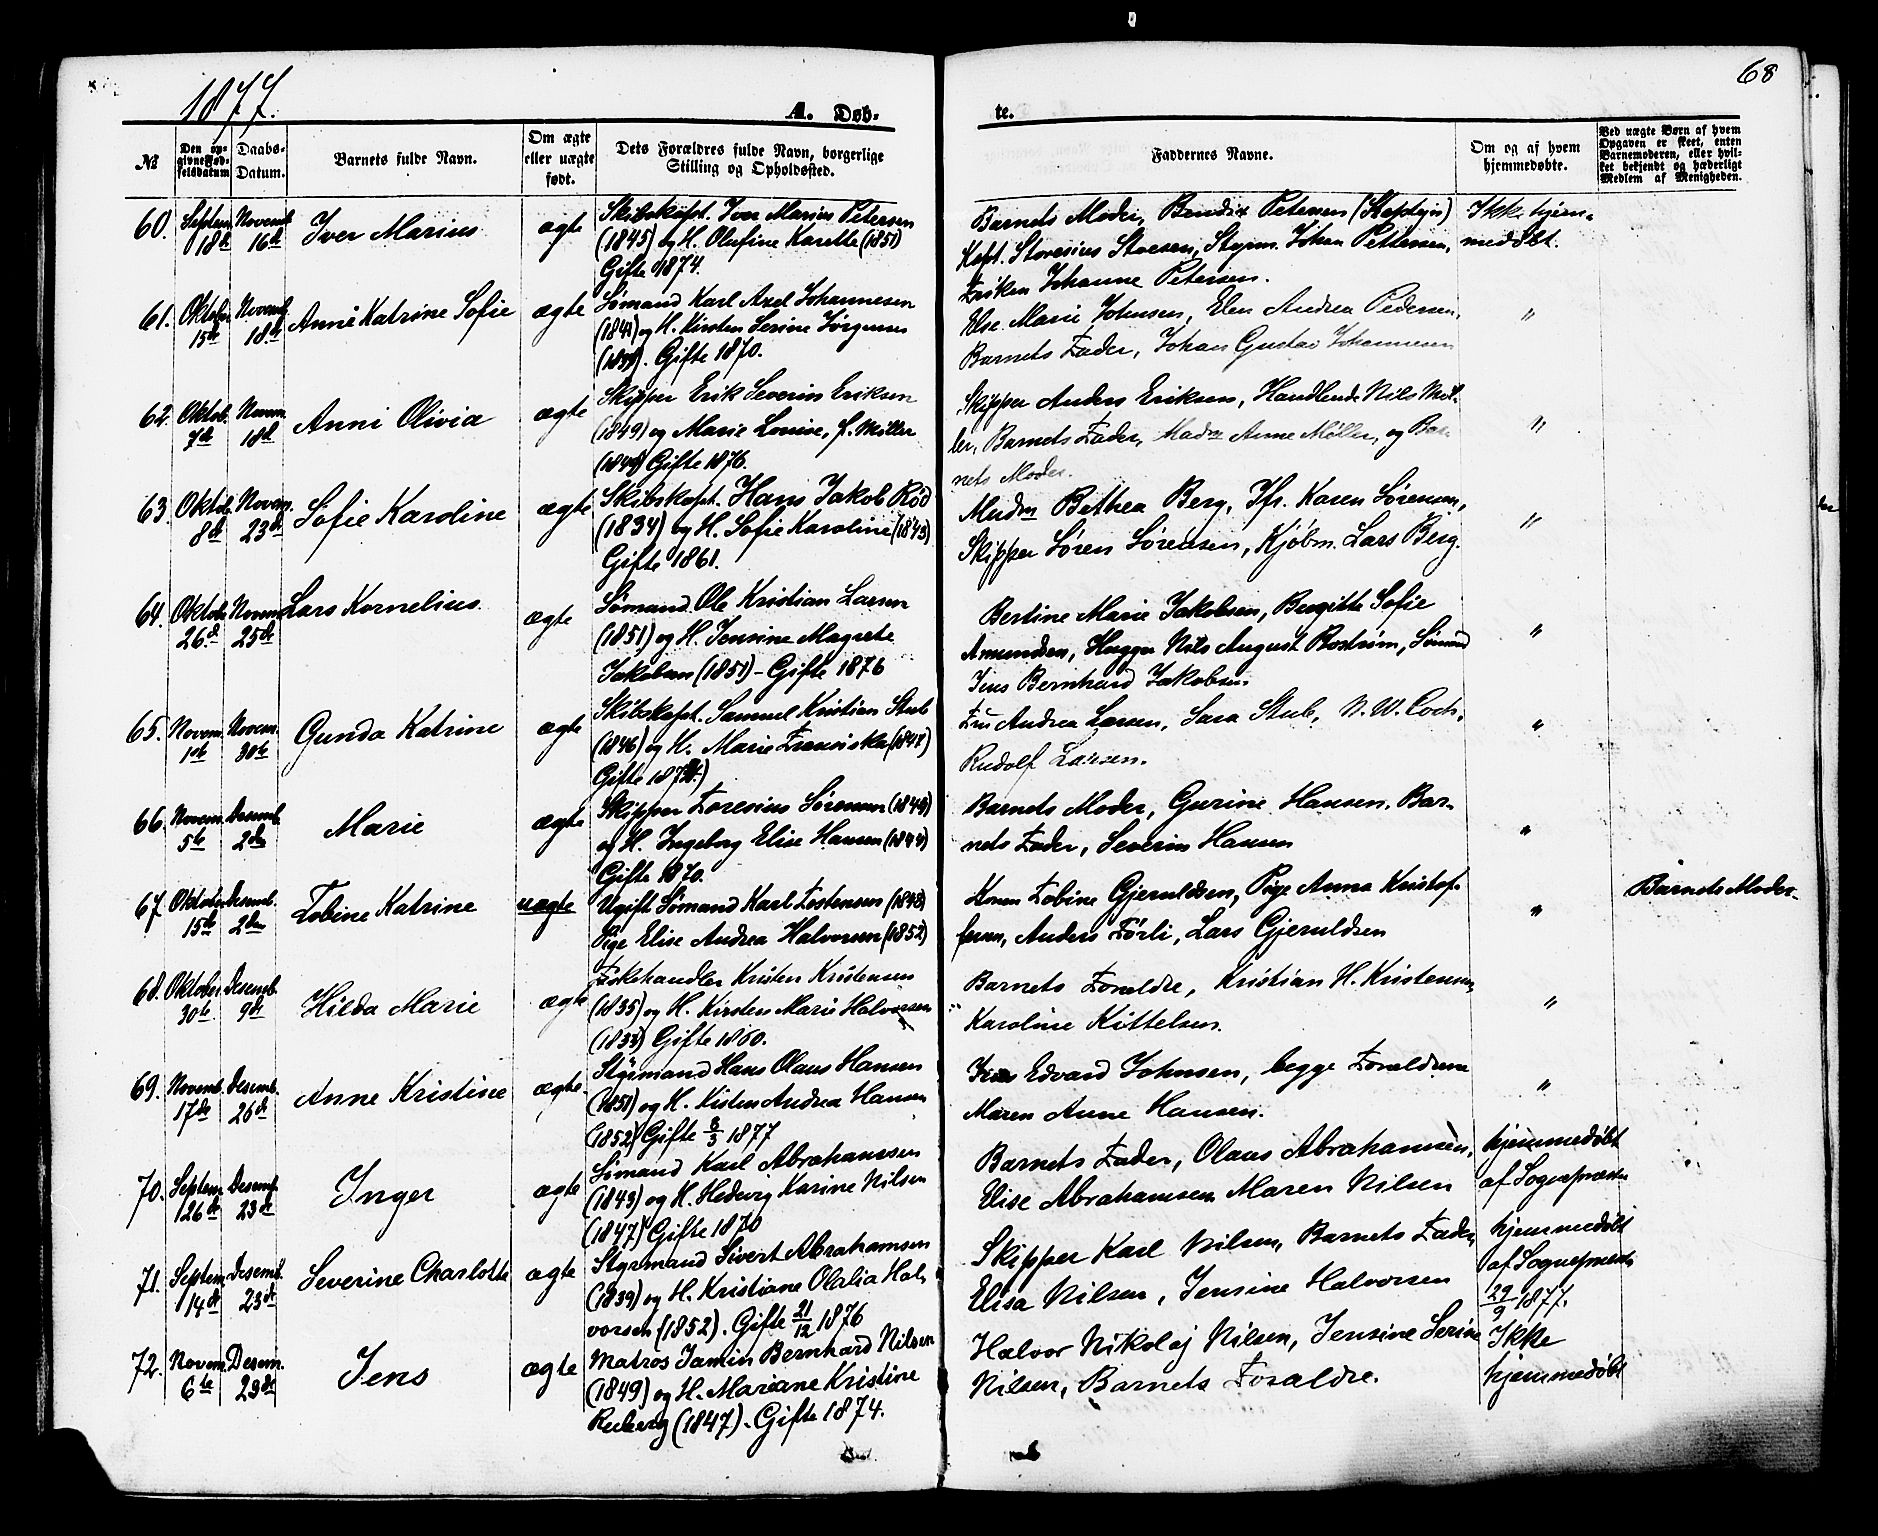 1877.
A. Døb-
te.
68
№
Den op-
givne Fød-
selsdatum
Daabs-
Datum.
Barnets fulde Navn.
Om ægte
eller uægte
født.
Dets Forældres fulde Navn, borgerlige
Stilling og Opholdssted.
Faddernes Navne.
Om og af hvem
hjemmedøbte.
Ved uægte Børn af hvem
Opgaven er skeet, enten
Barnemoderen, eller hvil-
ket bekjendt og hæderligt
Medlem af Menigheden.
60. Septem. 18de Novemb. 16de Iver Marius ægte
Skibskapt. Iver Marius Petersen
(1845) og H. Olufine Karette (1851)
Gifte 1874.
Barnets Moder, Bendix Petersen (Kaptejn)
Kapt. Storesius Storesen, Styrm. Johan Pettersen,
Frøken Johanne Petersen.
Ikke hjem-
medøbt.
61. Oktober 15de Novemb. 18de Anne Katrine Sofie ægte
Sømand Karl Axel Johannesen
og H. Kirsten Serine Jørgensen
Gifte 1870.
Else Marie Johnsen, Elen Andrea Pedersen,
Barnets Fader, Johan Gustav Johannesen
"
62. Oktob. 7de Novem. 18de Anni Olivia ægte
Skipper Erik Severin Eriksen
(1849) og Marie Louise, f. Møller
Gifte 1876.
Skipper Anders Eriksen, Handlende Nils Møl-
ler, Barnets Fader, Madm Anne Møller, og Bar-
nets Moder.
"
63. Oktob. 8de Novem. 23de Sofie Karoline ægte
Skibskapt. Hans Jakob Rød
(1834) og H. Sofie Karoline (1843)
Gifte 1861.
Madm Bethea Berg, Jfr. Karen Sørensen,
Skipper Søren Sørensen, Kjøbm. Lars Berg.
"
64. Oktob. 26.d Novem. 25de Lars Kornelius ægte
Sømand Ole Kristian Larsen
(1851) og H. Jensine Magrete
Jakobsen (1851) – Gifte 1876
Bertine Marie Jakobsen, Birgitte Sofie
Amundsen, Hugger Nils August Boström, Sømand
Jens Bernhard Jakobsen.
"
65. Novem. 1ste Novem. 30te Gunda Katrine ægte
Skibskapt. Samuel Kristian Stub
(1846) og H. Marie Franciska (1847)
Gifte
Fru Andrea Larsen, Sara Stub, N. W. Coch,
Rudolf Larsen.
"
66. Novem. 5te Desemb. 2den Marie ægte
Skipper Foresius Sørensen
og H. Ingeborg Elise Hansen
Gifte 1870.
Barnets Moder, Gurine Hansen, Bar-
nets Fader, Severin Hansen
"
67. Oktober 15de Desemb. 2den Tobine Katrine uægte
Ugift Sømand Karl Tostensen (1848)
Pige Elise Andrea Halvorsen (1852)
Konen Tobine Gjeruldsen, Pige Anna Kristof-
fersen, Anders Førli, Lars Gjeruldsen
"
Barnets Moder.
68. Oktober 30te Desemb. 9de Hilda Marie ægte
Fiskehandler Kristen Kristensen
(1835) og H. Kirsten Marie Halvorsen
Gifte 1860.
Barnets Forældre, Kristian H. Kristensen,
Karoline Kittelsen.
"
69. Novemb. 17de Desemb. 26de Anne Kristine ægte
Styrmand Hans Olaus Hansen
(1851) og H. Kisten Andrea Hansen
(1852) Gifte 8/3 1877
Jens Edvard Johnsen, begge Forældrene
Maren Anne Hansen.
"
70. Septem. 26de Desemb. 23de Inger ægte
Sømand Karl Abrahamsen
(1843) og H. Hedevig Karine Nilsen
(1847) Gifte 1870
Barnets Fader, Olaus Abrahamsen,
Elise Abrahamsen Maren Nilsen
hjemmedøbt
af Sognepræsten
71. Septem. 14de Desemb. 23de Severine Charlotte ægte
Styrmand Sivert Abrahamsen
(1839) og H. Kristiane Olalia Hal-
vorsen (1852). Gifte 21/12 1876
Skipper Karl Nilsen, Barnets Fader,
Elisa Nilsen, Jensine Halvorsen
hjemmedøbt
af Sognepræsten
29/9 1877.
72. Novem. 6te Desem. 29de Jens ægte
Matros Jamin Bernhard Nilsen
(1849) og H. Mariane Kristine
Reiberg (1847). Gifte 1874.
Halvor Nikolaj Nilsen, Jensine Serine
Nilsen, Barnets Forældre.
Ikke
hjemmedøbt